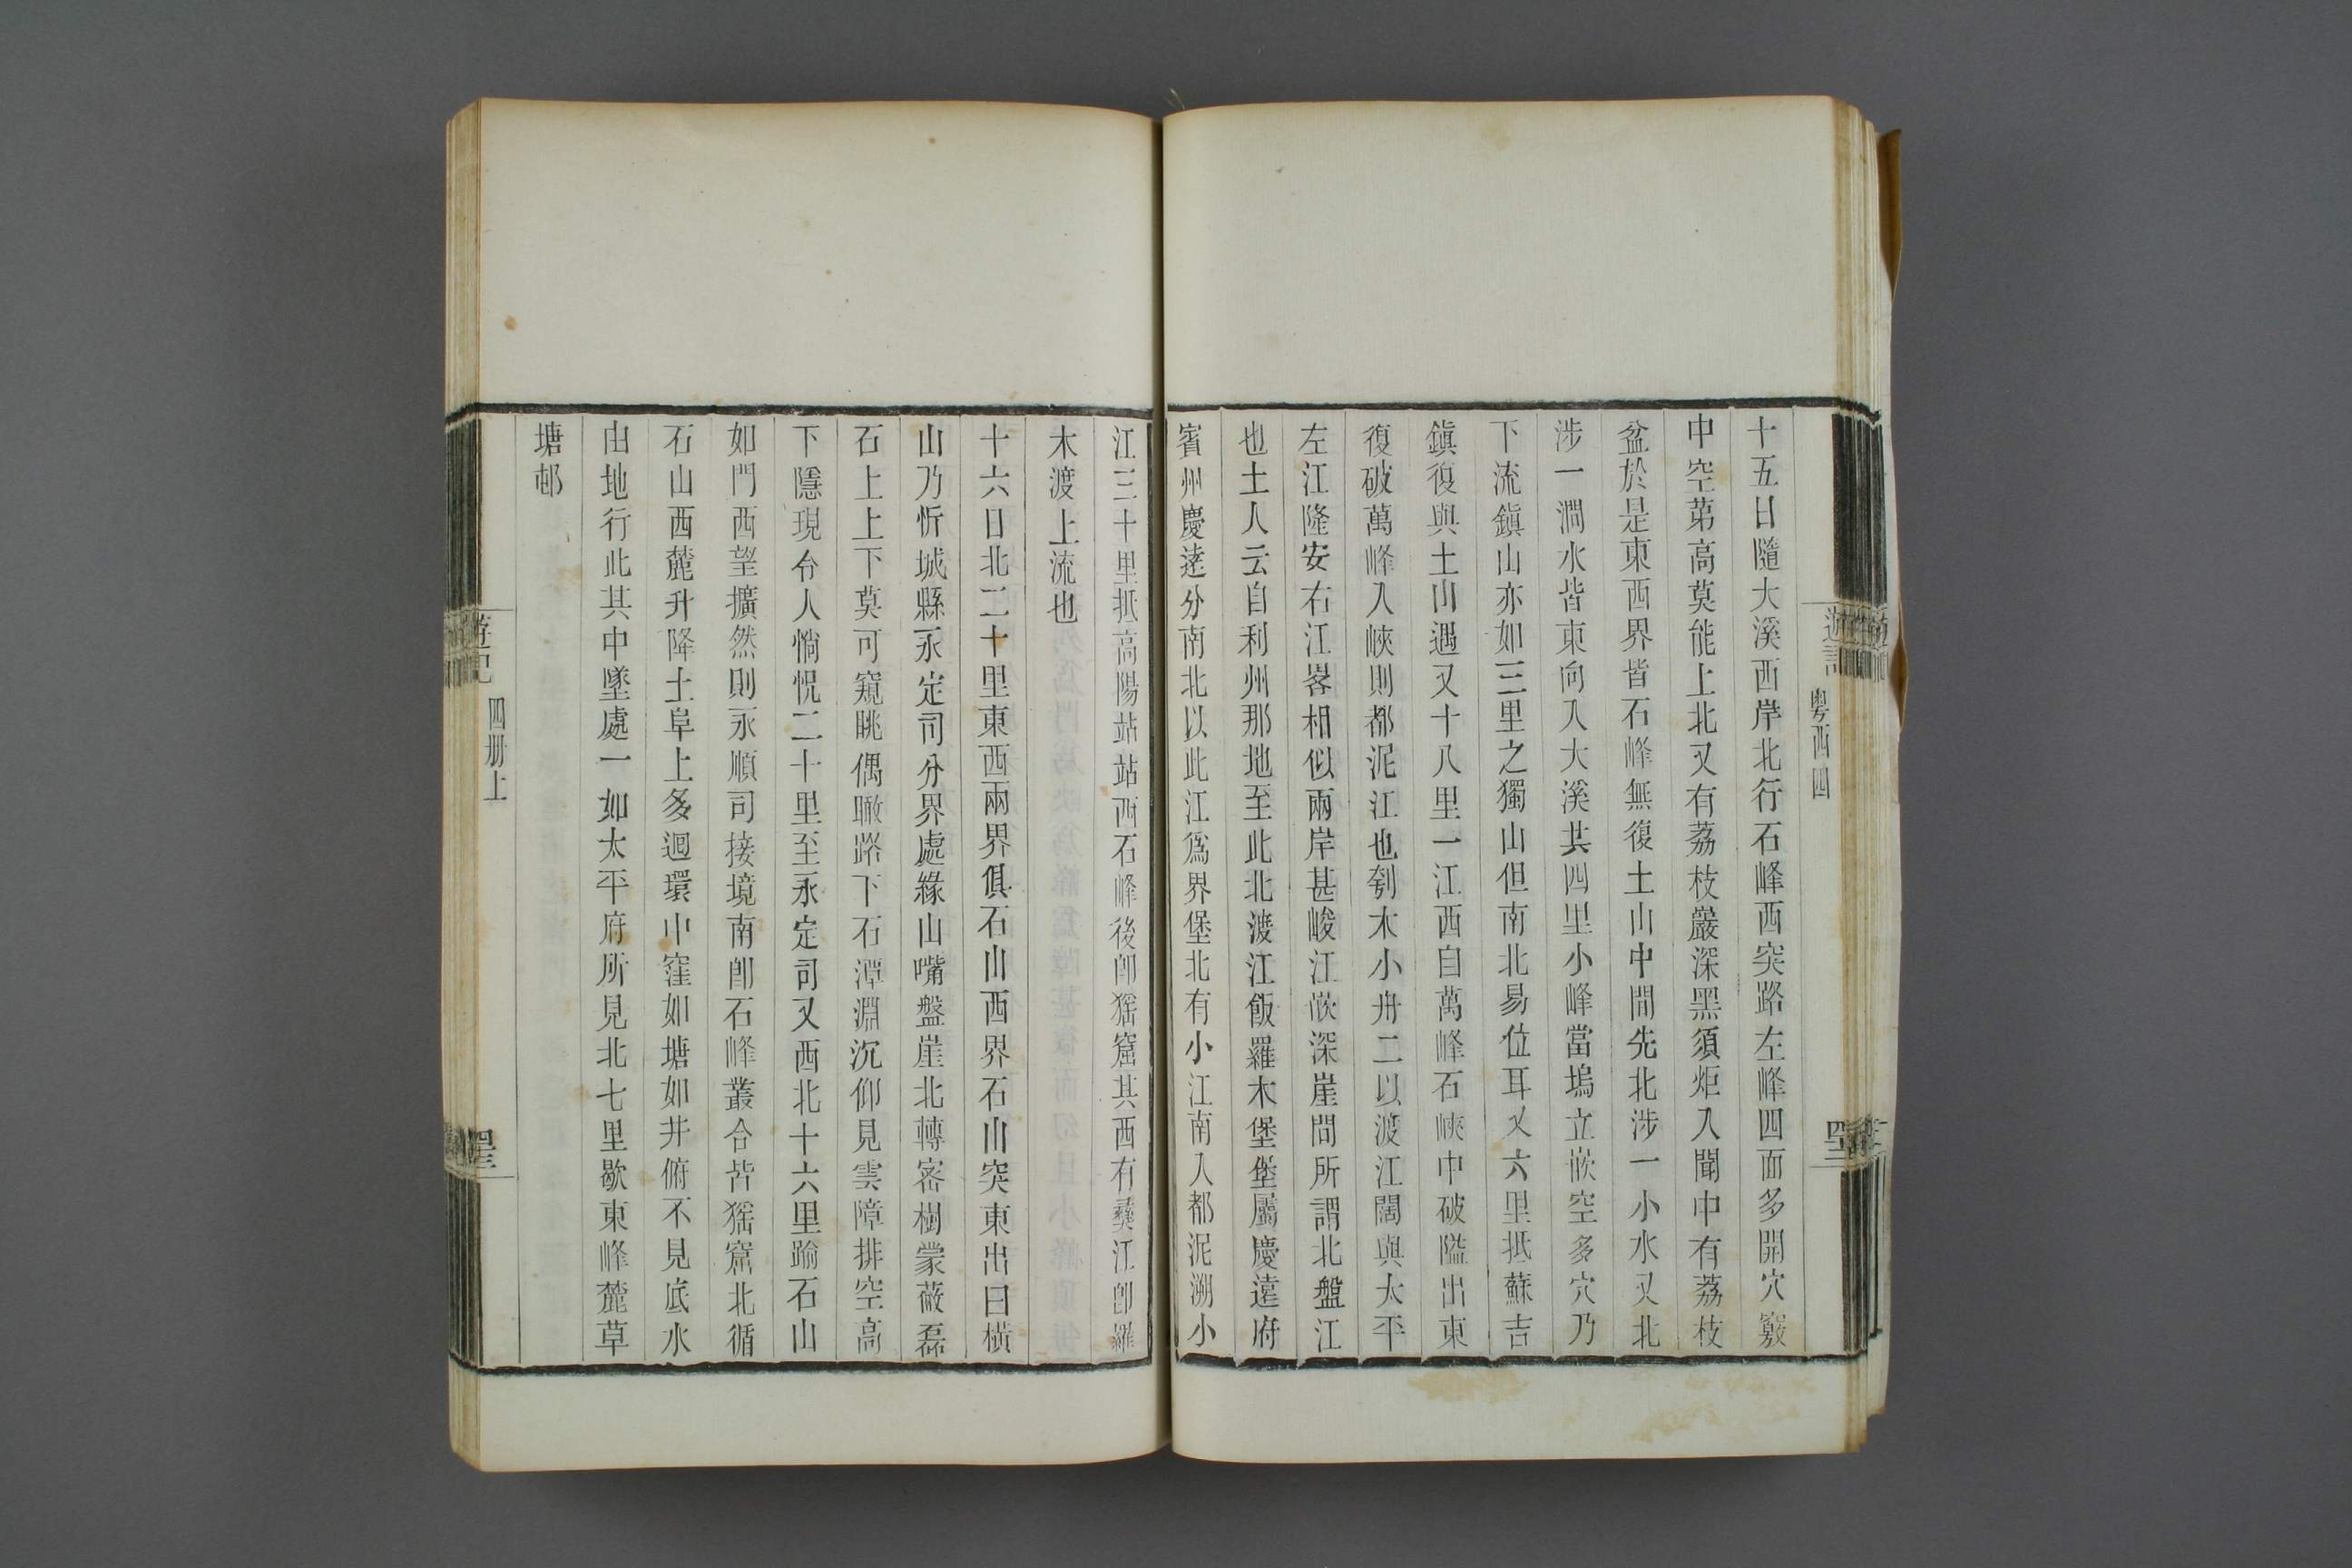 粵西四
十五日隨大溪西岸北行石峰西突路左峰四面多開穴竅
中空第高莫能上北又有荔枝巖深黑須炬入聞中有荔枝
盆於是東西界皆石峰無復土山中間先北涉一小水又北
涉一澗水皆東向入大溪共四里小峰當塢立嵌空多穴乃
下流鎭山亦如三里之獨山但南北易位耳又六里抵蘇吉
鎭復與土山遇又十八里一江西自萬峰石峽中破隘出東
復破萬峰入峽則都泥江也刳木小舟二以渡江闊與太平
左江隆安右江畧相似兩岸甚峻江嵌深崖間所謂北盤江
也土人云自利州那地至此北渡江飯羅木堡堡屬慶遠府
賓州慶逹分南北以此江爲界堡北有小江南入都泥溯小
江三十里抵高陽站站西石峰後卽猺窟其西有彝江卽羅
木渡上流也
十六日北二十里東西兩界俱石山西界石山突東出曰橫
山乃忻城縣永定司分界處緣山嘴盤崖北轉密樹蒙薇磊
石上上下莫可窺眺偶瞰路下石潭淵沉仰見雲障排空高
下隱現令人惝怳二十里至永定司又西北十六里踰石山
如門西望擴然則永順司接境南卽石峰叢合皆猺窟北循
石山西麓升降土阜上多迴環中窪如塘如井俯不見底水
由地行此其中墜處一如太平府所見北七里歇東峰麓草
塘邨
遊記
四册上